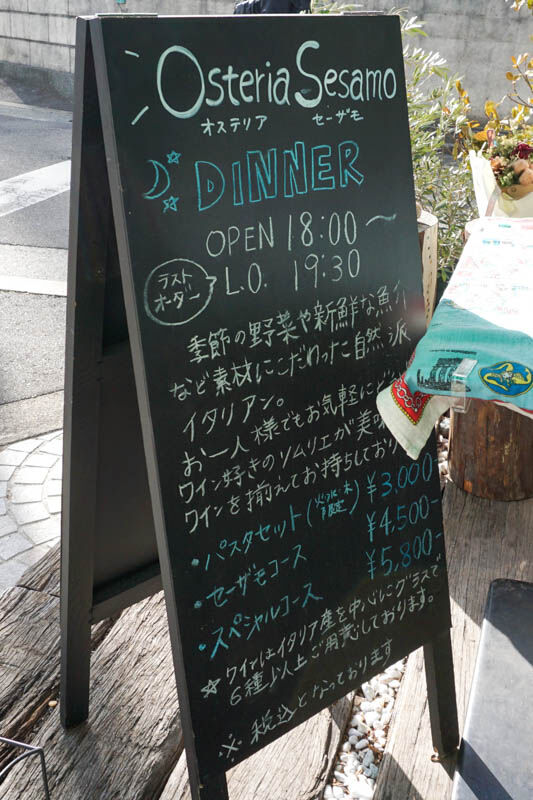 Osteria Sesamo
オステリア セーザモ
DINNER
OPEN 18:00〜
ラストオーダー L.O. 19:30
季節の野菜や新鮮な魚介
など素材にこだわった自然派
イタリアン。
お一人様でもお気軽に
ワイン好きのソムリエが美味
ワインを揃えてお待ちしており
・パスタセット(限定) ¥3,000
・セーザモコース ¥4,500-
・スペシャルコース ¥5,800-
☆ワインはイタリア産を中心にグラスで
6種以上ご用意しております。
※税込となっております